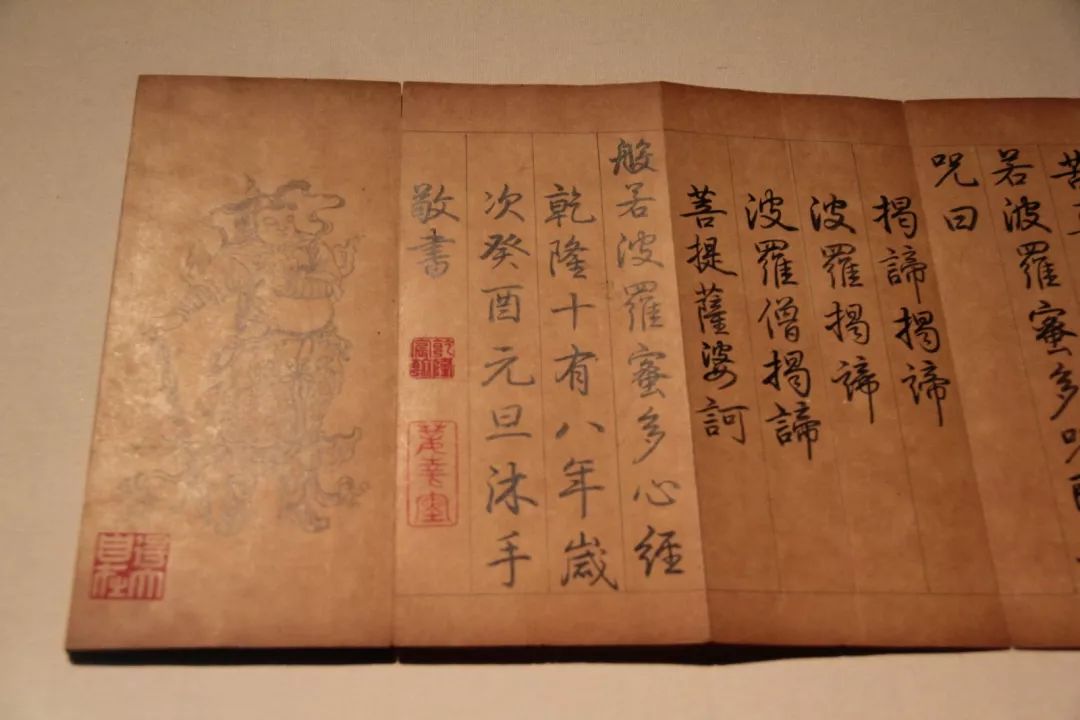 若波羅蜜多呪
呪曰
揭諦揭諦
波羅揭諦
波羅僧揭諦
菩提薩婆訶
般若波羅蜜多心經
乾隆十有八年歲
次癸酉元旦沐手
敬書
乾隆宸翰
得大自在